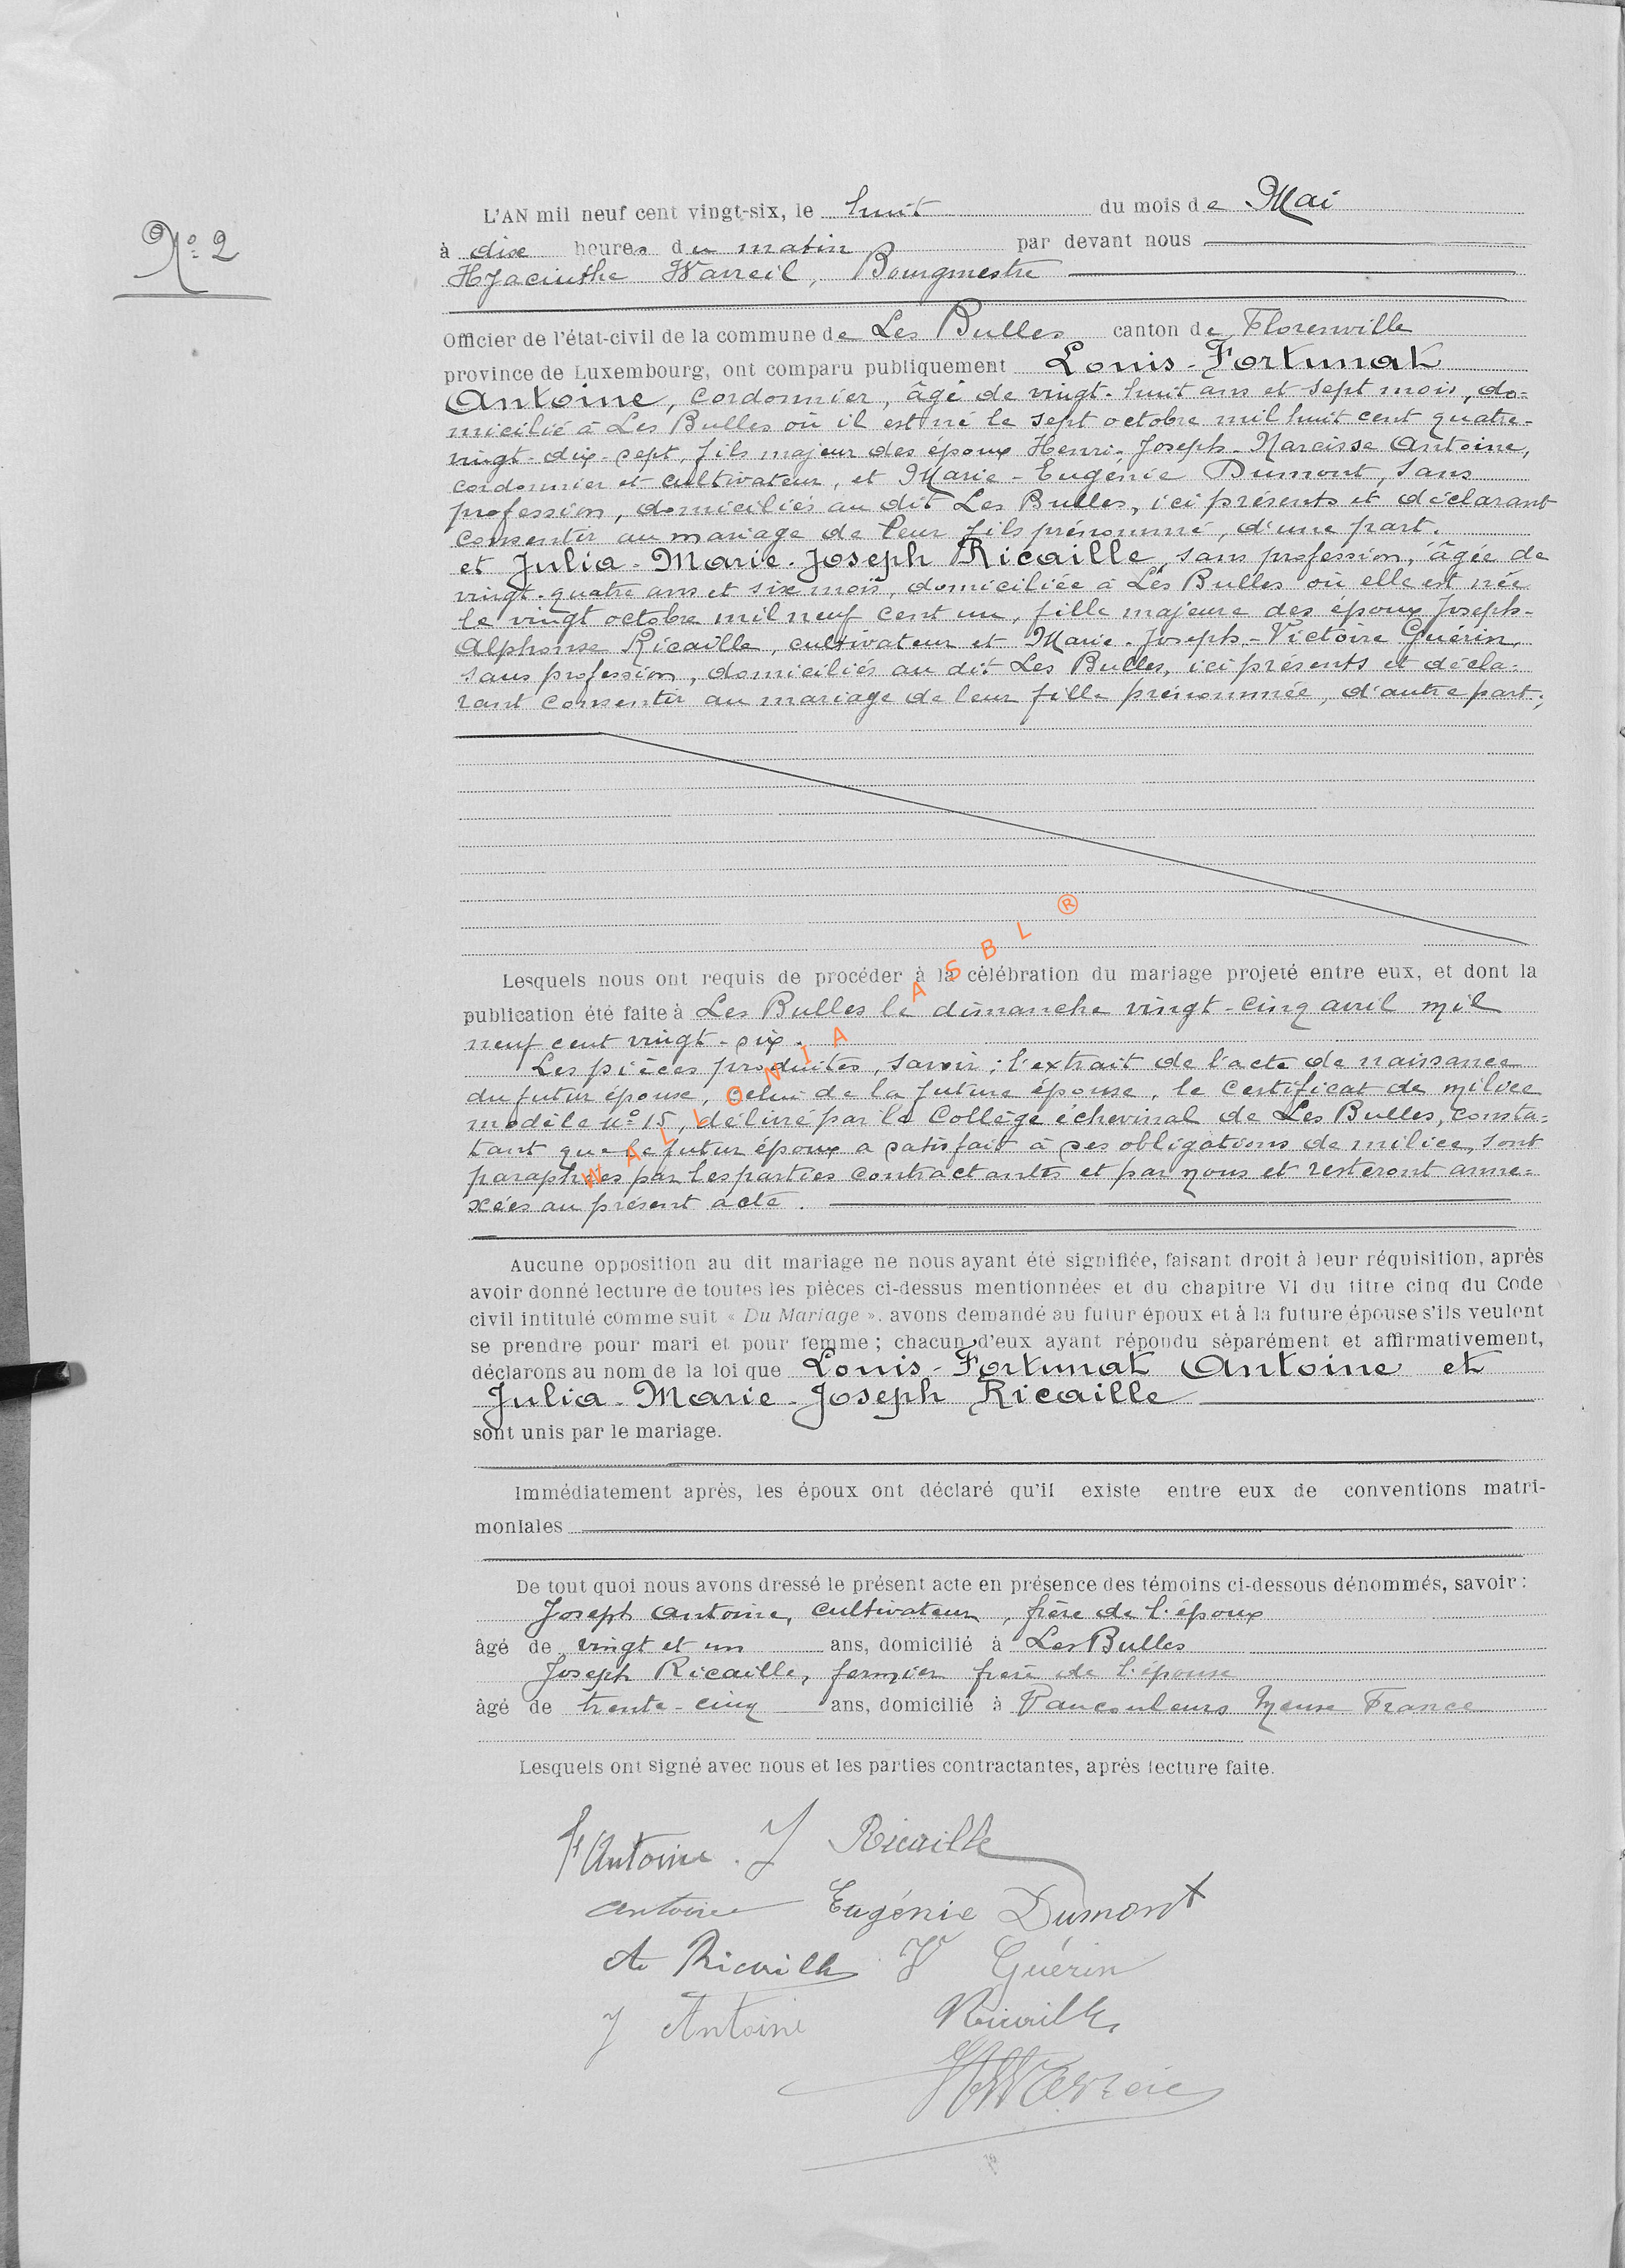 N° 2
L'AN mil neuf cent vingt-six, le huit du mois de Mai
à dix heures du matin par devant nous
Hyacinthe Warreil, Bourgmestre
Officier de l'état-civil de la commune de Les Bulles canton de Florenville
province de Luxembourg, ont comparu publiquement Louis-Fortunat
Antoine, cordonnier, âgé de vingt-huit ans et sept mois, do=
micilié à Les Bulles où il est né le sept octobre mil huit cent quatre-
vingt-dix-sept, fils majeur des époux Henri-Joseph-Narcisse Antoine,
cordonnier et cultivateur, et Marie-Eugénie Dumont, sans
profession, domiciliés au dit Les Bulles, ici présents et déclarant
consentir au mariage de leur fils prénommé, d'une part.
et Julia-Marie-Joseph Ricaille, sans profession, âgée de
vingt-quatre ans et six mois, domiciliée à Les Bulles où elle est née
le vingt octobre mil neuf cent un, fille majeure des époux Joseph-
Alphonse Ricaille, cultivateur et Marie-Joseph-Victoire Guérin,
sans profession, domiciliés au dit Les Bulles, ici présents et décla=
rant consentir au mariage de leur fille prénommée, d'autre part;
Lesquels nous ont requis de procéder à la célébration du mariage projeté entre eux, et dont la
publication été faite à Les Bulles le dimanche vingt-cinq avril mil
neuf cent vingt-six.
Les pièces produites, savoir: l'extrait de l'acte de naissance
du futur épouse, celui de la future épouse, le certificat de milice
modèle n° 15, délivré par le Collège échevinal de Les Bulles, consta=
tant que le futur époux a satisfait à ses obligations de milice, sont
paraphées par les parties contractantes et par nous et resteront anne=
xées au présent acte.
WALLONIA ASBL ®
Aucune opposition au dit mariage ne nous ayant été signifiée, faisant droit à leur réquisition, après
avoir donné lecture de toutes les pièces ci-dessus mentionnées et du chapitre VI du titre cinq du Code
civil intitulé comme suit « Du Mariage ». avons demandé au futur époux et à la future épouse s'ils veulent
se prendre pour mari et pour femme; chacun d'eux ayant répondu séparément et affirmativement,
déclarons au nom de la loi que Louis-Fortunat Antoine et
Julia-Marie-Joseph Ricaille
sont unis par le mariage.
Immédiatement après, les époux ont déclaré qu'il existe entre eux de conventions matri-
moniales
De tout quoi nous avons dressé le présent acte en présence des témoins ci-dessous dénommés, savoir:
Joseph Antoine, cultivateur, frère de l'époux
âgé de vingt et un ans, domicilié à Les Bulles
Joseph Ricaille, fermier frère de l'épouse
âgé de trente-cinq ans, domicilié à Vaucouleurs Meuse France
Lesquels ont signé avec nous et les parties contractantes, après lecture faite.
Antoine. J Ricaille
Antoine Eugénie Dumont
A Ricaille V Guérin
J Antoine Ricaille
HWarreil